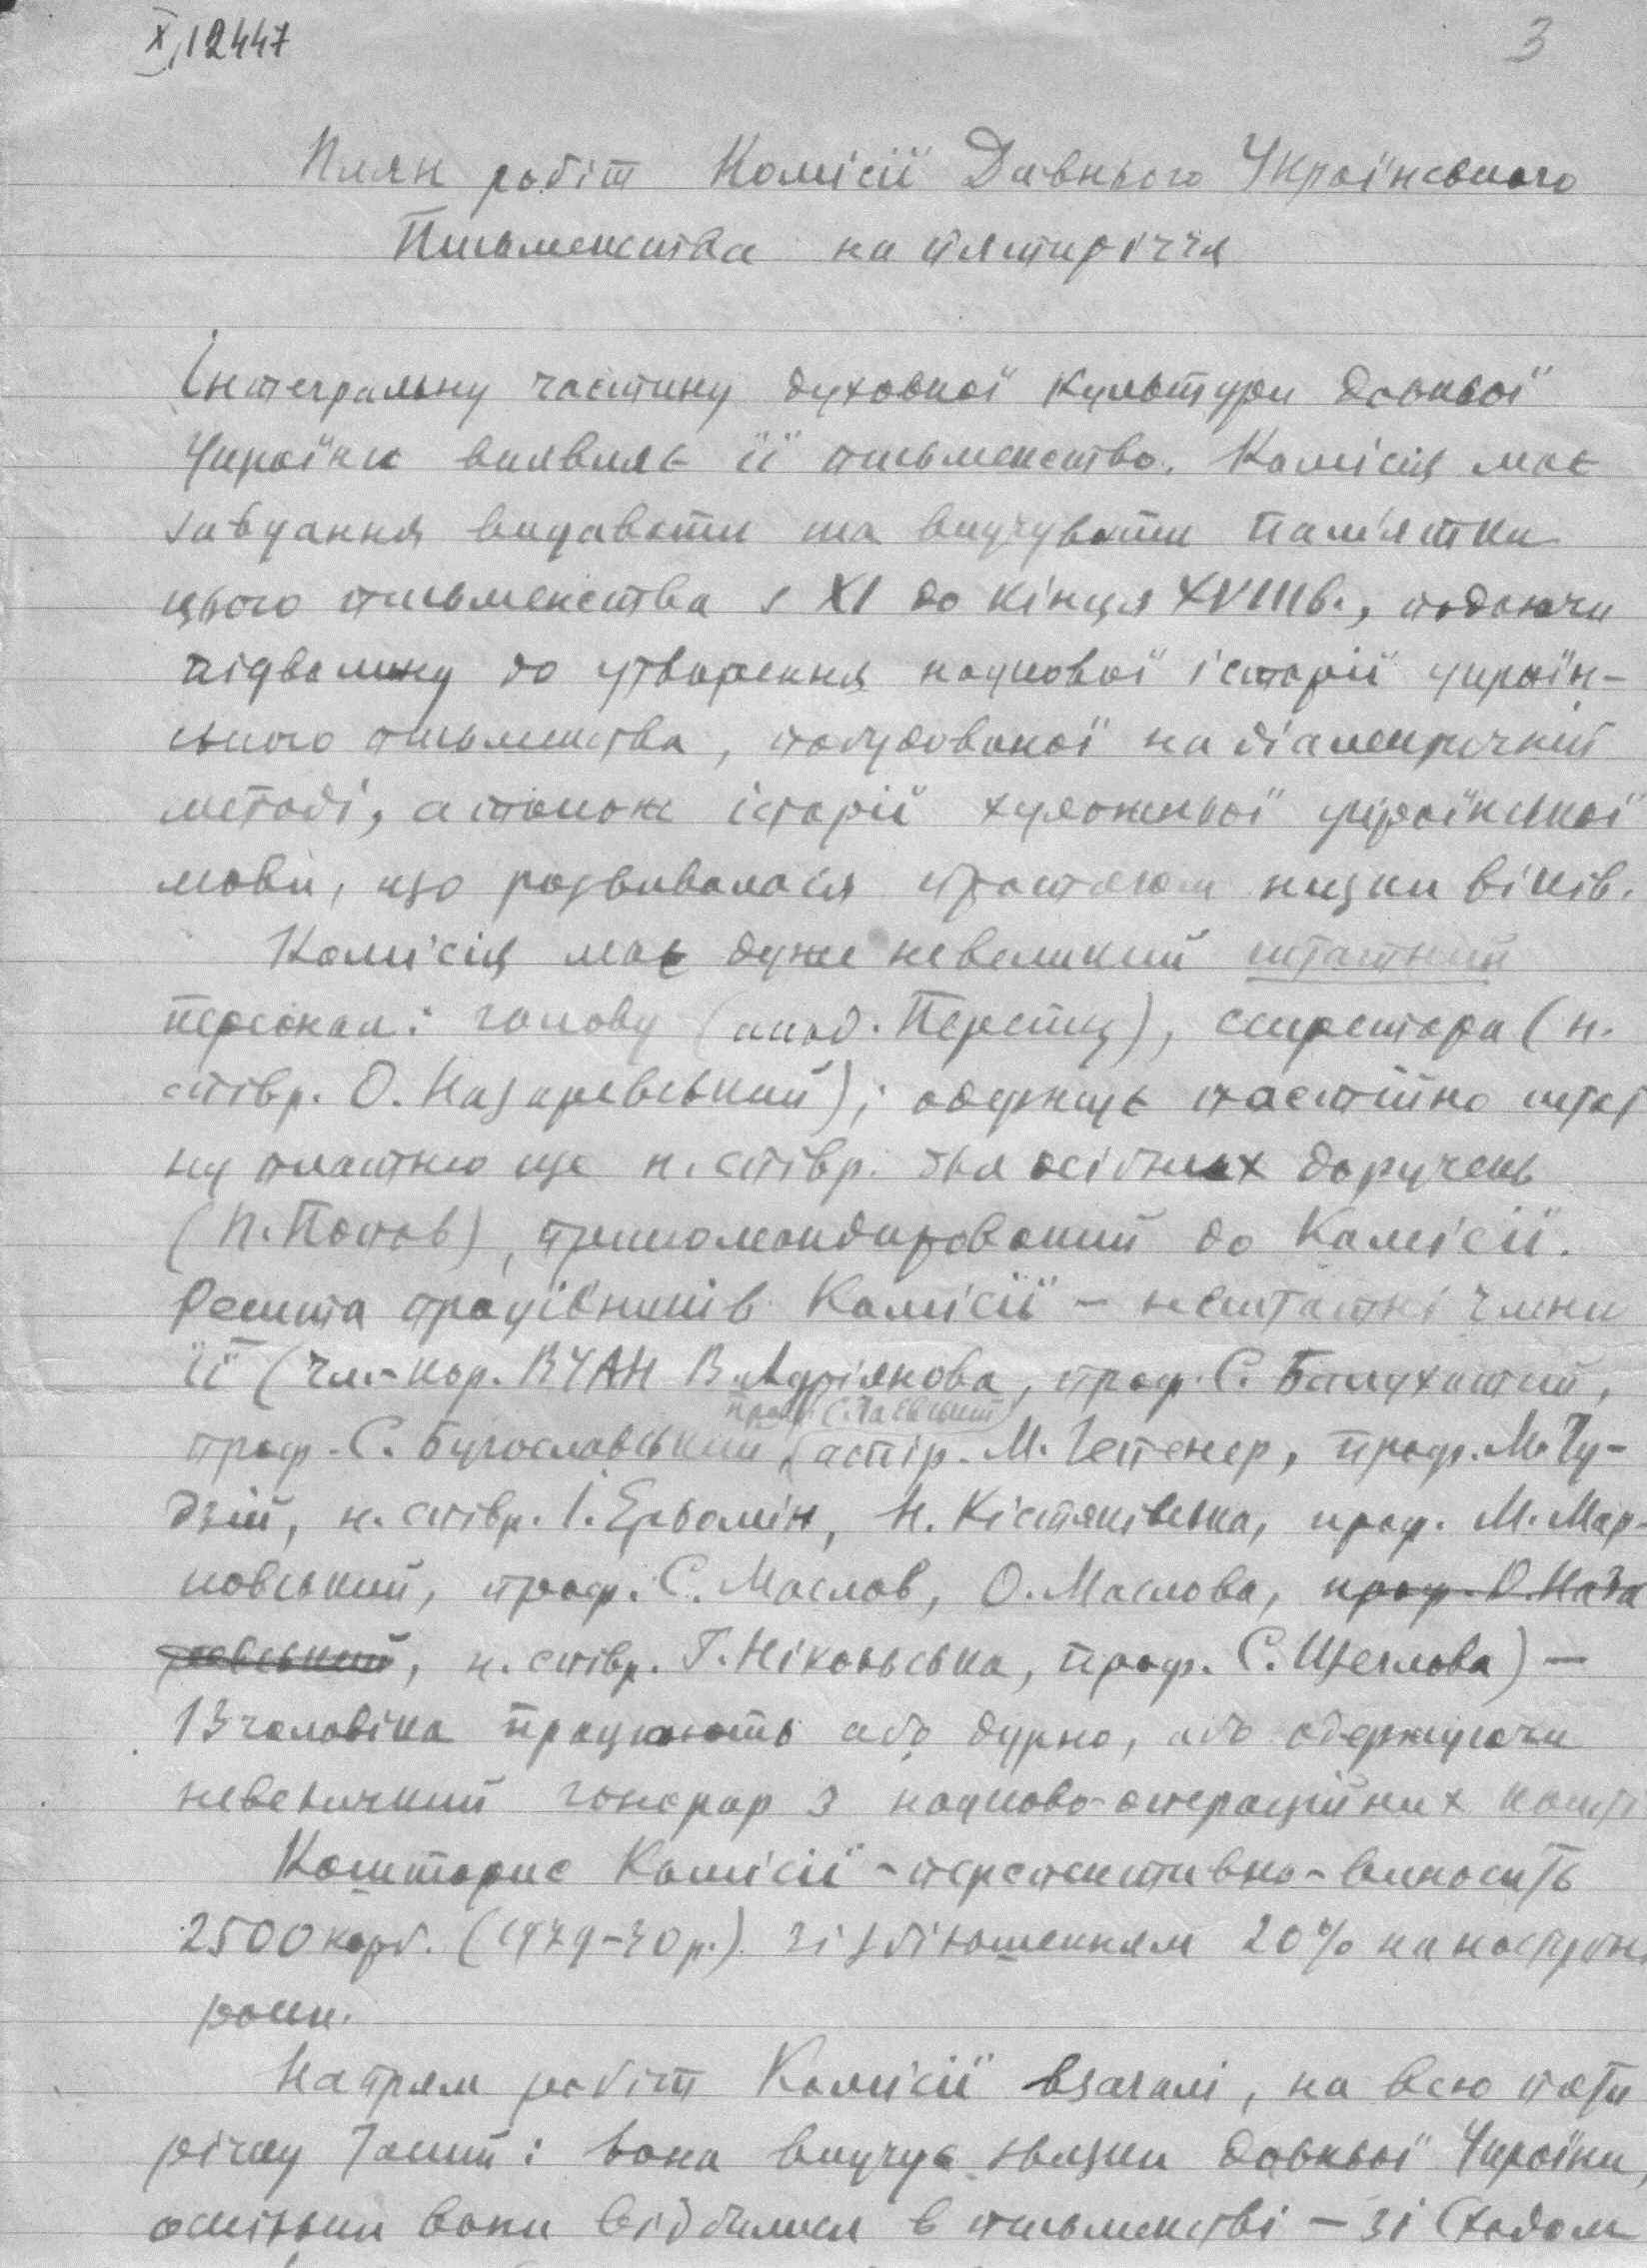 X, 12447
3
Плян робіт Комісії Давнього Українського
Письменства на пятиріччя
Інтегральну частину духовної культури давньої
України виявляє її письменство. Комісія має
завдання видавати та вивчувати пам'ятки
цього письменства з XI до кінця XVIII в., подаючи
підвалину до утворення наукової історії україн-
ського письменства, побудованої на діалектичній
методі, а також історії художньої української
мови, що розвивалася протягом низки віків.
Комісія має дуже невеликий штатний
персонал: голову (акад. Перетц), секретаря (н.
співр. О. Назаревський); одержує постійно штат
ну платню ще н. співр. для осібних доручень
(П. Попов), прикомандирований до Комісії.
Решта працівників Комісії – нештатні члени
її (чл.-кор. ВУАН В. Адріянова, проф. С. Балухатий,
проф. С. Гаєвський
проф. С. Бугославський, аспір. М. Гепенер, проф. М. Гу-
дзій, н. співр. І. Єрьомін, Н. Кістяківська, проф. М. Мар-
ковський, проф. С. Маслов, О. Маслова, проф. О. Наза
ревський, н. співр. Г. Нікольська, проф. С. Щеглова) —
13 чоловіка працюють або дурно, або одержуючи
невеличкий гонорар з науково-операційних кошт
Кошторис Комісії – перспективно – виносить
2500 карб. (1929–30 р.) зі збільшенням 20% на наступні
роки.
Напрям робіт Комісії взагалі, на всю пяти
річку такий: вона вивчує звязки давньої України,
оскільки вони відбилися в письменстві – зі Сходом